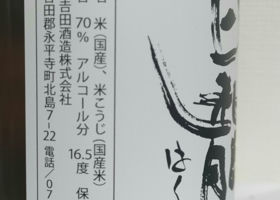 はく
米(国産)、米こうじ(国産米)
70% アルコール分 16.5度 保
吉田酒造株式会社
吉田郡永平寺町北島7-22 電話/07